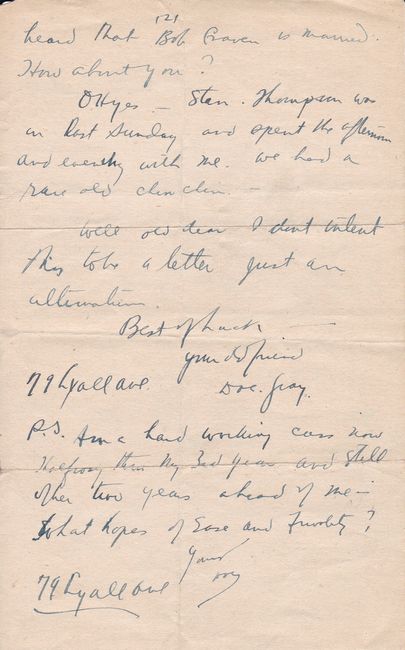 (2)
heard that Bob Craven is married.
How about you?
Oh yes – Stan. Thompson was
in last Sunday and spent the afternoon
and evening with me. We had a
rare old chin chin. –
Well old dear I dont intent
this to be a letter just an
Best of Luck
your old friend
79 Lyall ave. Doc. Gray.
P.S. Am a hard working cuss now
Halfway thru my 3rd year and still
other two years ahead of me –
What hopes of Ease and Frivolity?
Yours
79 Lyall ave